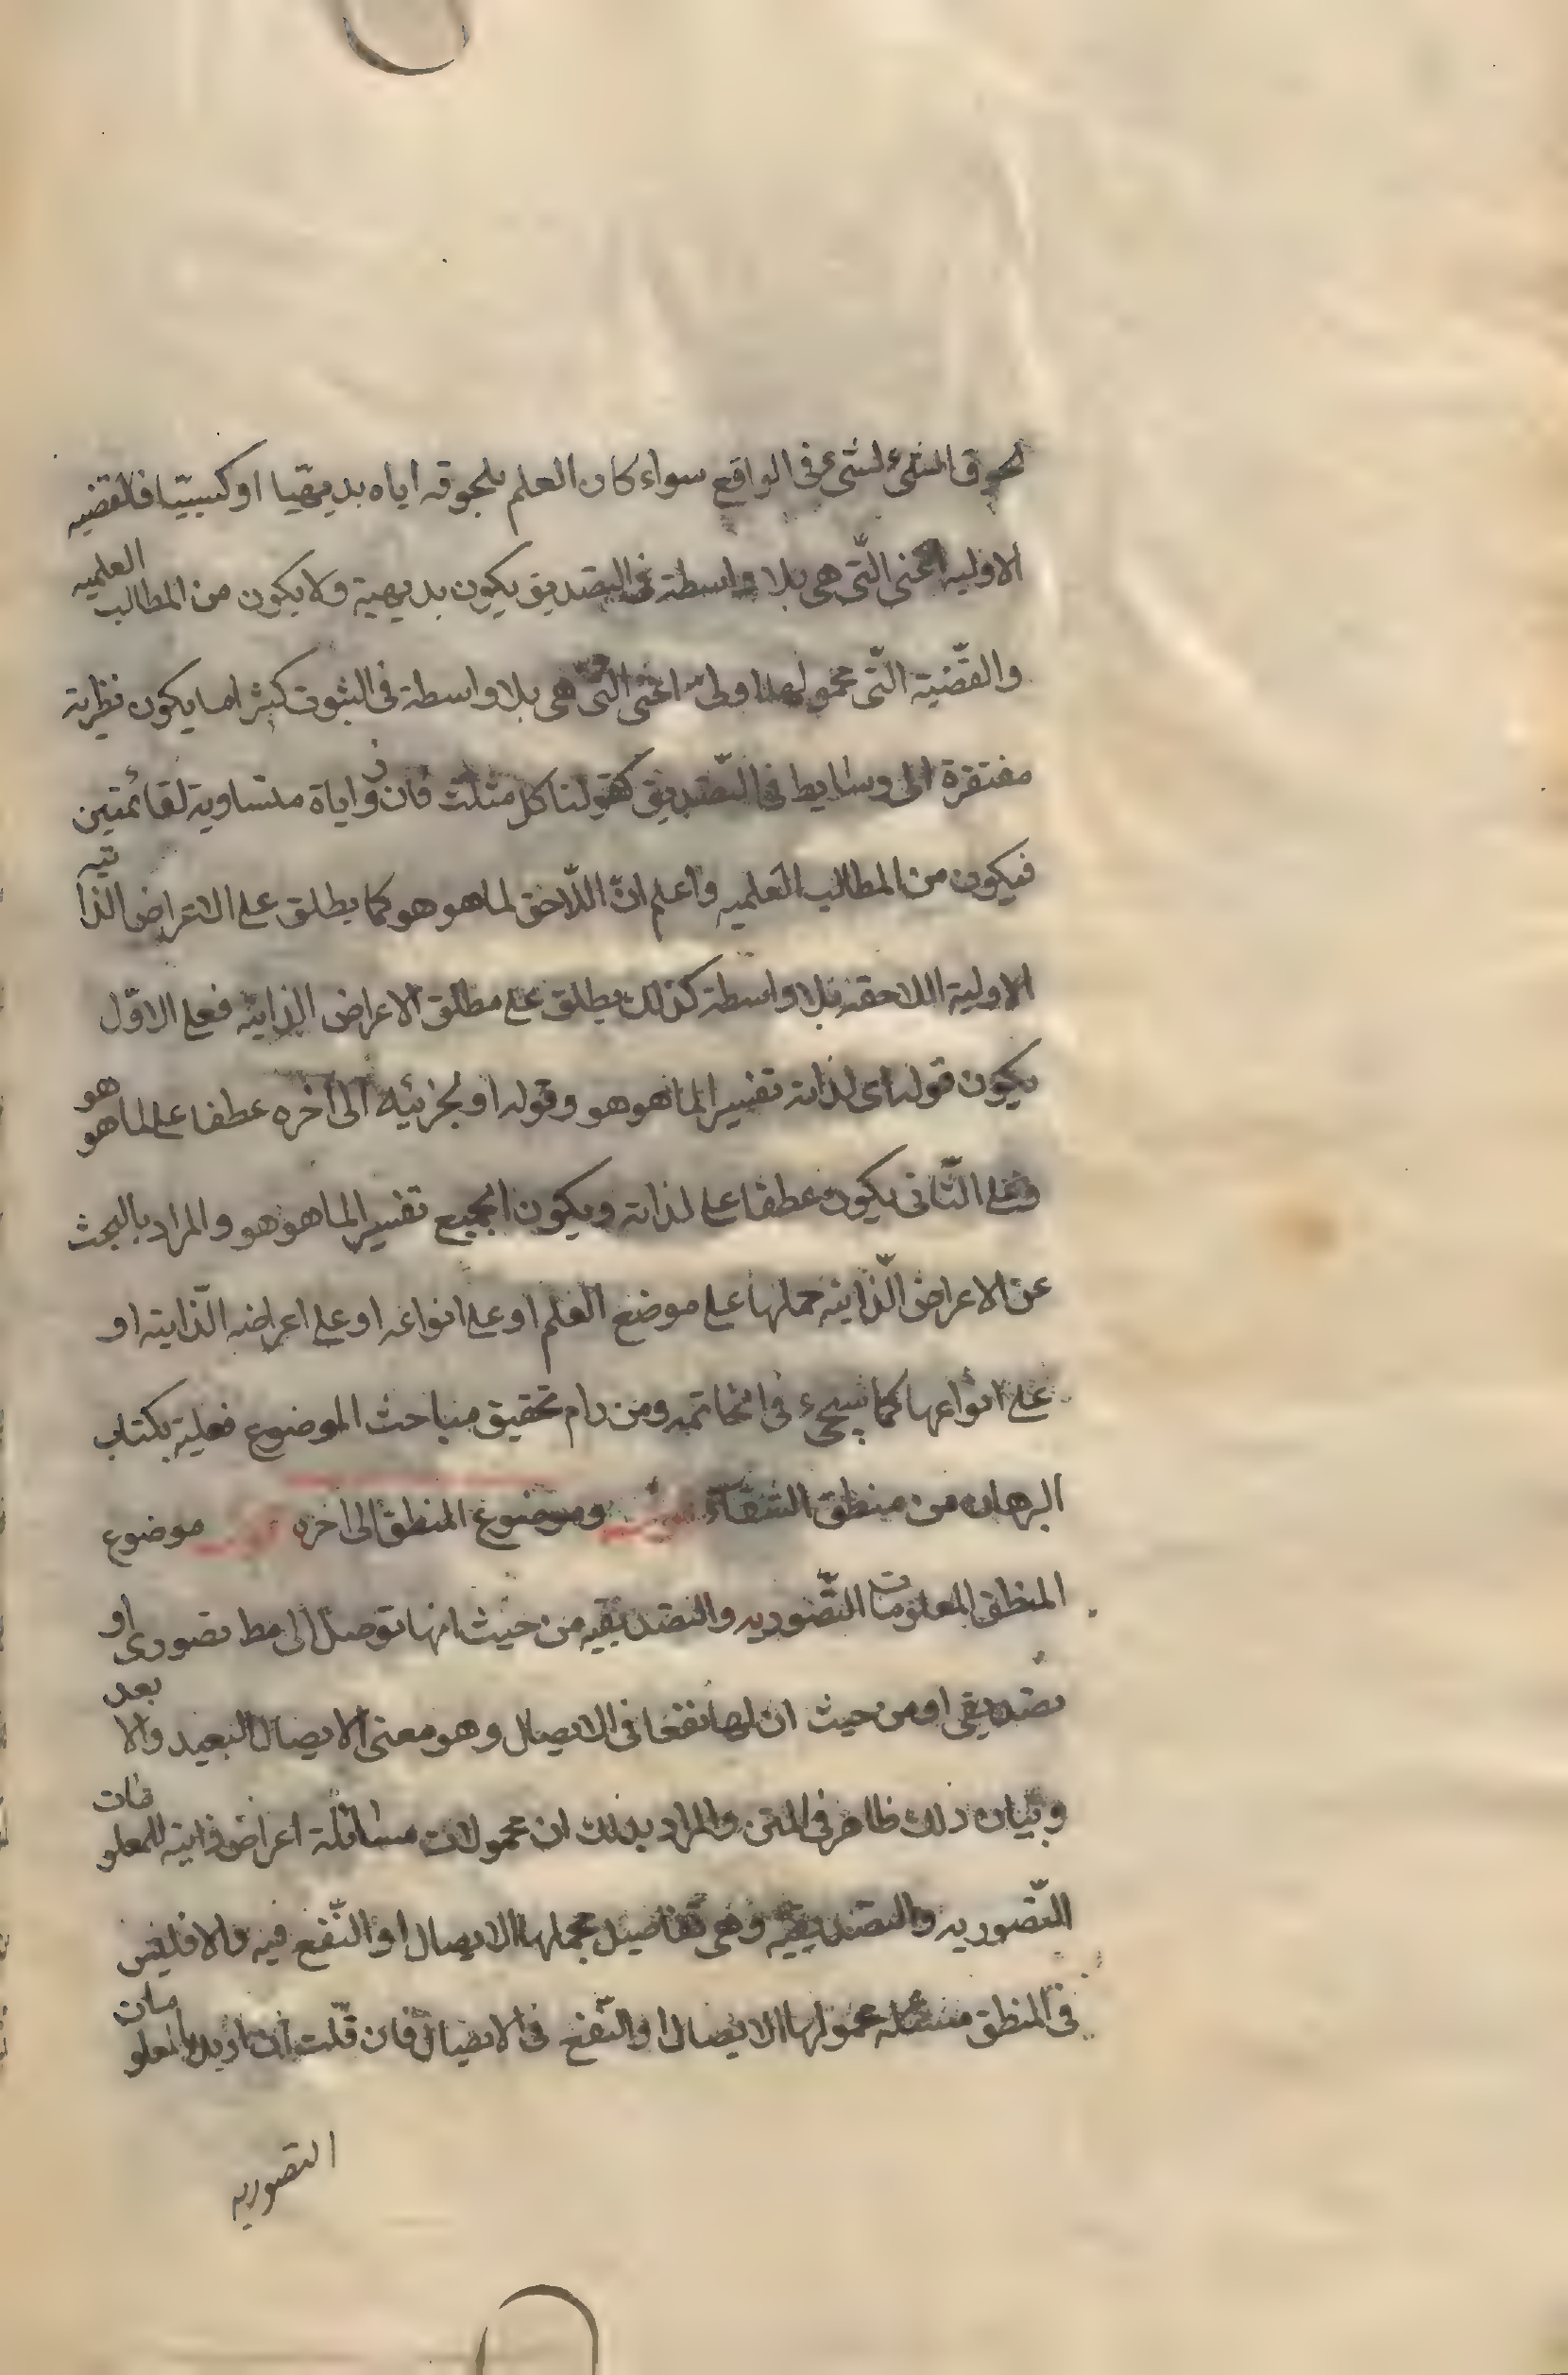 لحوق الشئ لشئ فى الواقع سواء كان العلم بلحوقه اياه بديهيا او كسبيّا فالقضيه
الاوليه اعنى الّتى هى بلا واسطة فى التصديق يكون بديهية ولا يكون من المطالب العلميه
والقضّية الّتى محمولها اولى اعنى التى هى بلا واسطة فى الثبوت كثيرا ما يكون نظرية
مفتقرة الى وسايط فى التّصديق كقولنا كل مثلث فان زواياه متساوية لقائمتين
فيكون من المطالب العلميه واعلم انّ اللّاحق لما هو هو كما يطلق على الاعراض الذاتيه
الاولية اللاحقة بلا واسطة كذلك يطلق على مطلق الاعراض الذاتيّه فعلى الاوّل
يكون قوله اى لذاته تفسيرا لما هو هو وقوله او لجزئيه الى آخره عطفا على لما هو هو
وعلى الثّانى يكون عطفا على لذاته ويكون الجميع تفسيرا لما هو هو والمراد بالبحث
عن الاعراض الّذاتيه حملها على موضع العلم او على انواعه او على اعراضه الّذاتيه او
على انواعها كما سيجىء فى الخاتمه ومن رام تحقيق مباحث الموضوع فعليه بكتاب
البرهان من منطق الشفاء وموضوع المنطق الى آخره موضوع
المنطق المعلومات التّصوريه والتصديقيه من حيث انها توصل الى مط تصورى او
تصديقى او من حيث ان لها نفعا فى الايصال وهو معنى الايصال البعيد والابعد
وبيان ذلك ظاهر فى المتن والمراد بذلك ان محمولات مسائله اعراض ذاتيه للمعلومات
التّصوريه والتصديقيّه وهى تفاصيل مجملها الايصال او النّفع فيه والا فليس
فى المنطق مسئله محمولها الايصال او النّفع فى الايصال فان قلت ان اريد بالمعلومات
التصوريه